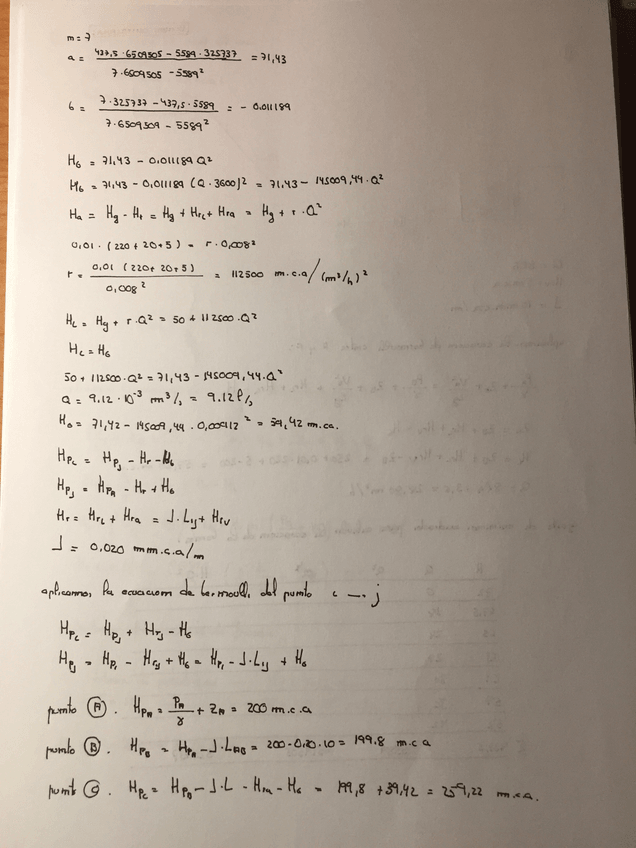 m = 7
a = 437,5 · 6509505 - 5589 · 325737 / 7 · 6509505 - 5589² = 71,43
b = 7 · 325737 - 437,5 · 5589 / 7 · 6509509 - 5589² = - 0,011189
H6 = 71,43 - 0,011189 Q²
H6 = 71,43 - 0,011189 (Q · 3600)² = 71,43 - 145009,44 · Q²
Ha = Hg - Ht = Hg + Hrc + Hra = Hg + r · Q²
0,01 · (220 + 20 + 5) = r · 0,008²
r = 0,01 (220 + 20 + 5) / 0,008² = 112500 m.c.a/(m³/h)²
Hc = Hg + r · Q² = 50 + 112500 · Q²
Hc = H6
50 + 112500 · Q² = 71,43 - 145009,44 · Q²
Q = 9.12 · 10⁻³ m³/s = 9.12 ℓ/s
H6 = 71,42 - 145009,44 · 0,00912² = 59,42 m.ca.
Hpc = Hpj - Hr - H6
Hpj = HpA - Hr + H6
Hr = Hrc + Hra = J · Lij + Hrv
J = 0,020 mm.c.a/m
aplicamos la ecuacion de bernoulli del punto i → j
Hpc = Hpj + Hrj - H6
Hpj = Hpi - Hrj + H6 = Hpi - J · Lij + H6
punto A. HpA = PA/γ + ZA = 200 m.c.a
punto B. HpB = HpA - J · LAB = 200 - 0,20 · 10 = 199.8 m.c.a
punto C. Hpc = HpB - J · L - Hra - H6 = 199,8 + 39,42 = 259,22 m.c.a.